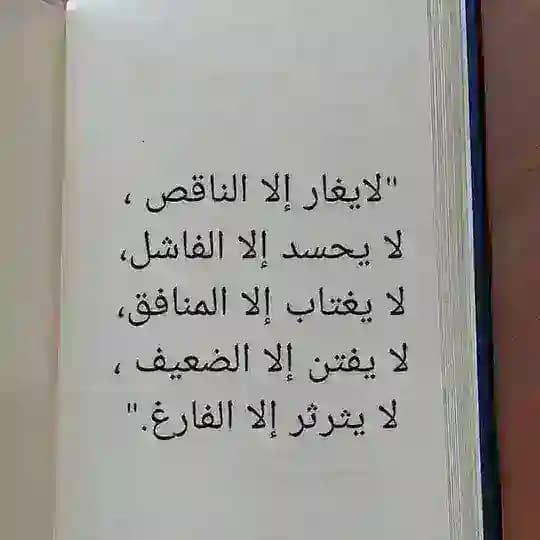 "لايغار إلا الناقص ،
لا يحسد إلا الفاشل،
لا يغتاب إلا المنافق،
لا يفتن إلا الضعيف ،
لا يثرثر إلا الفارغ."